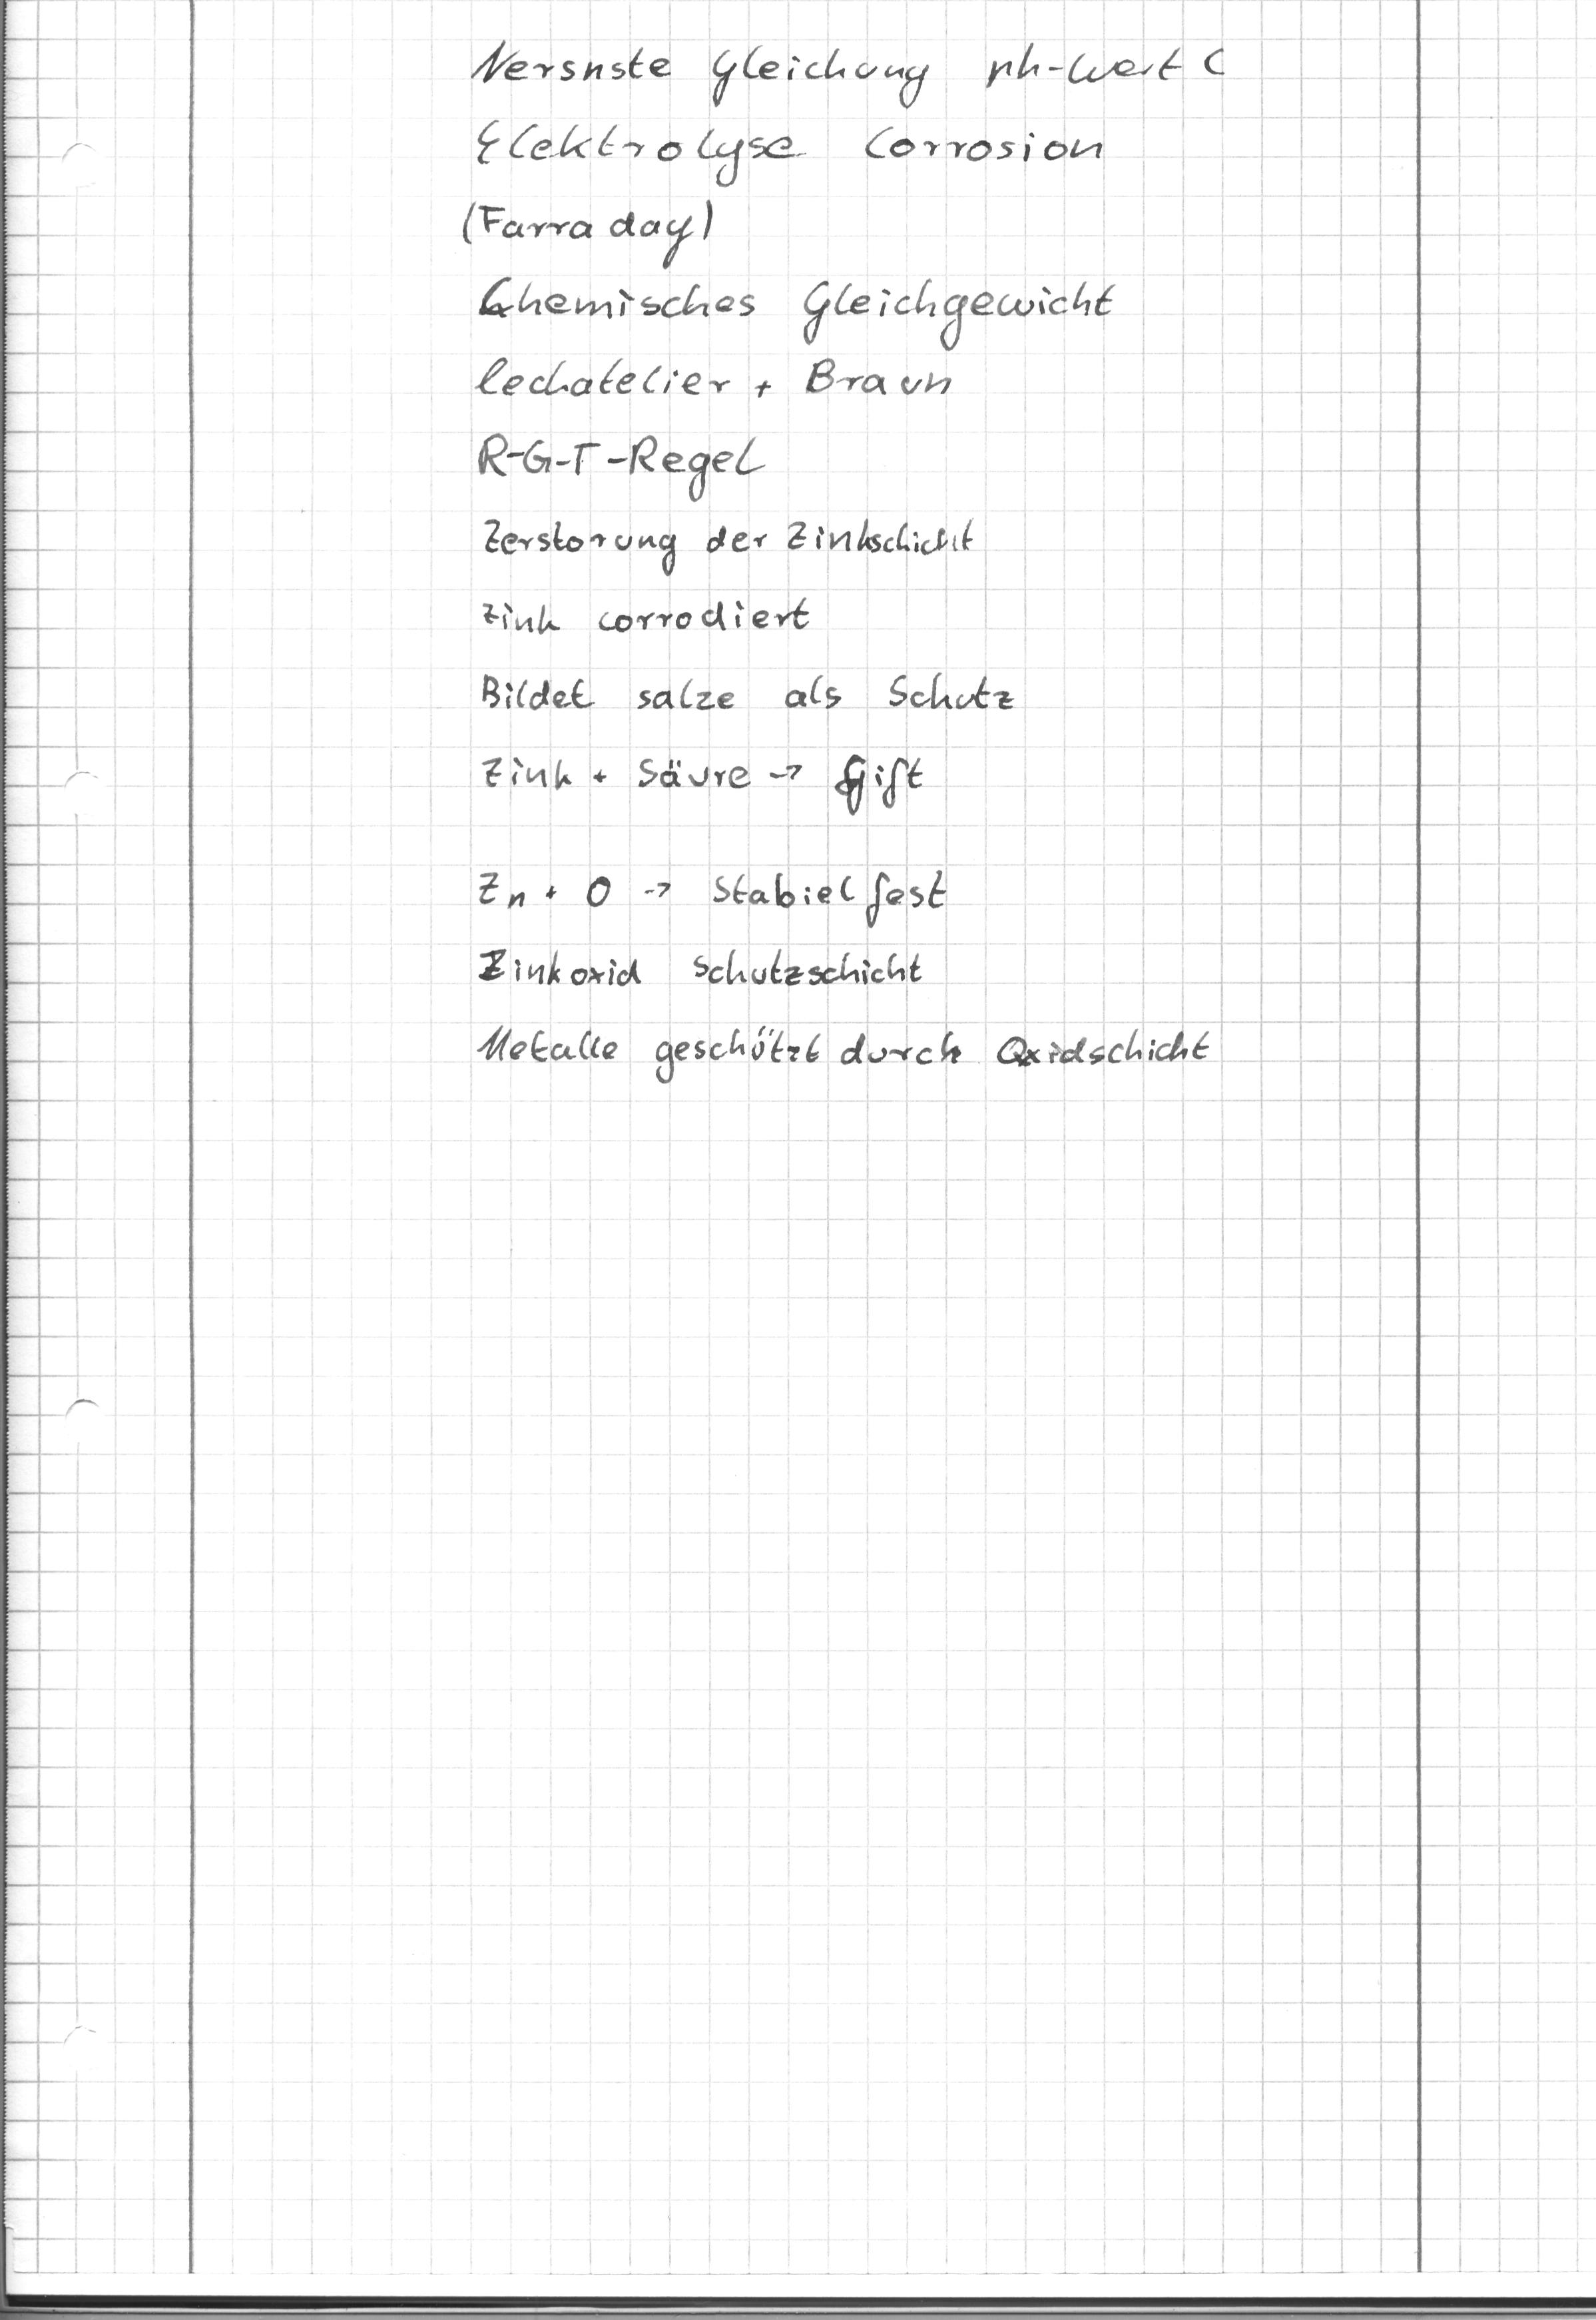 Nersnste Gleichung ph-Wert C
Elektrolyse Corrosion
(Farraday)
Chemisches Gleichgewicht
lechatelier + Braun
R-G-T-Regel
Zerstorung der Zinkschicht
Zink corrodiert
Bildet salze als Schutz
Zink + Säure → Gift
Zn + O → Stabiel fest
Zinkoxid Schutzschicht
Metalle geschützt durch Oxidschicht